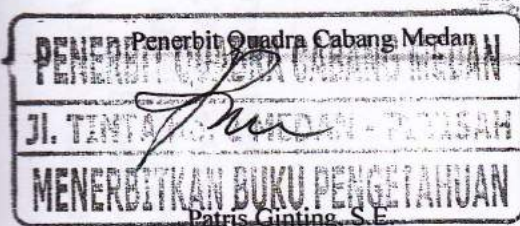 Penerbit Quadra Cabang Medan
PENERBIT QUADRA CABANG MEDAN
Jl. TINTA MEDAN - PETISAH
MENERBITKAN BUKU PENGETAHUAN
Patris Ginting, S.E.